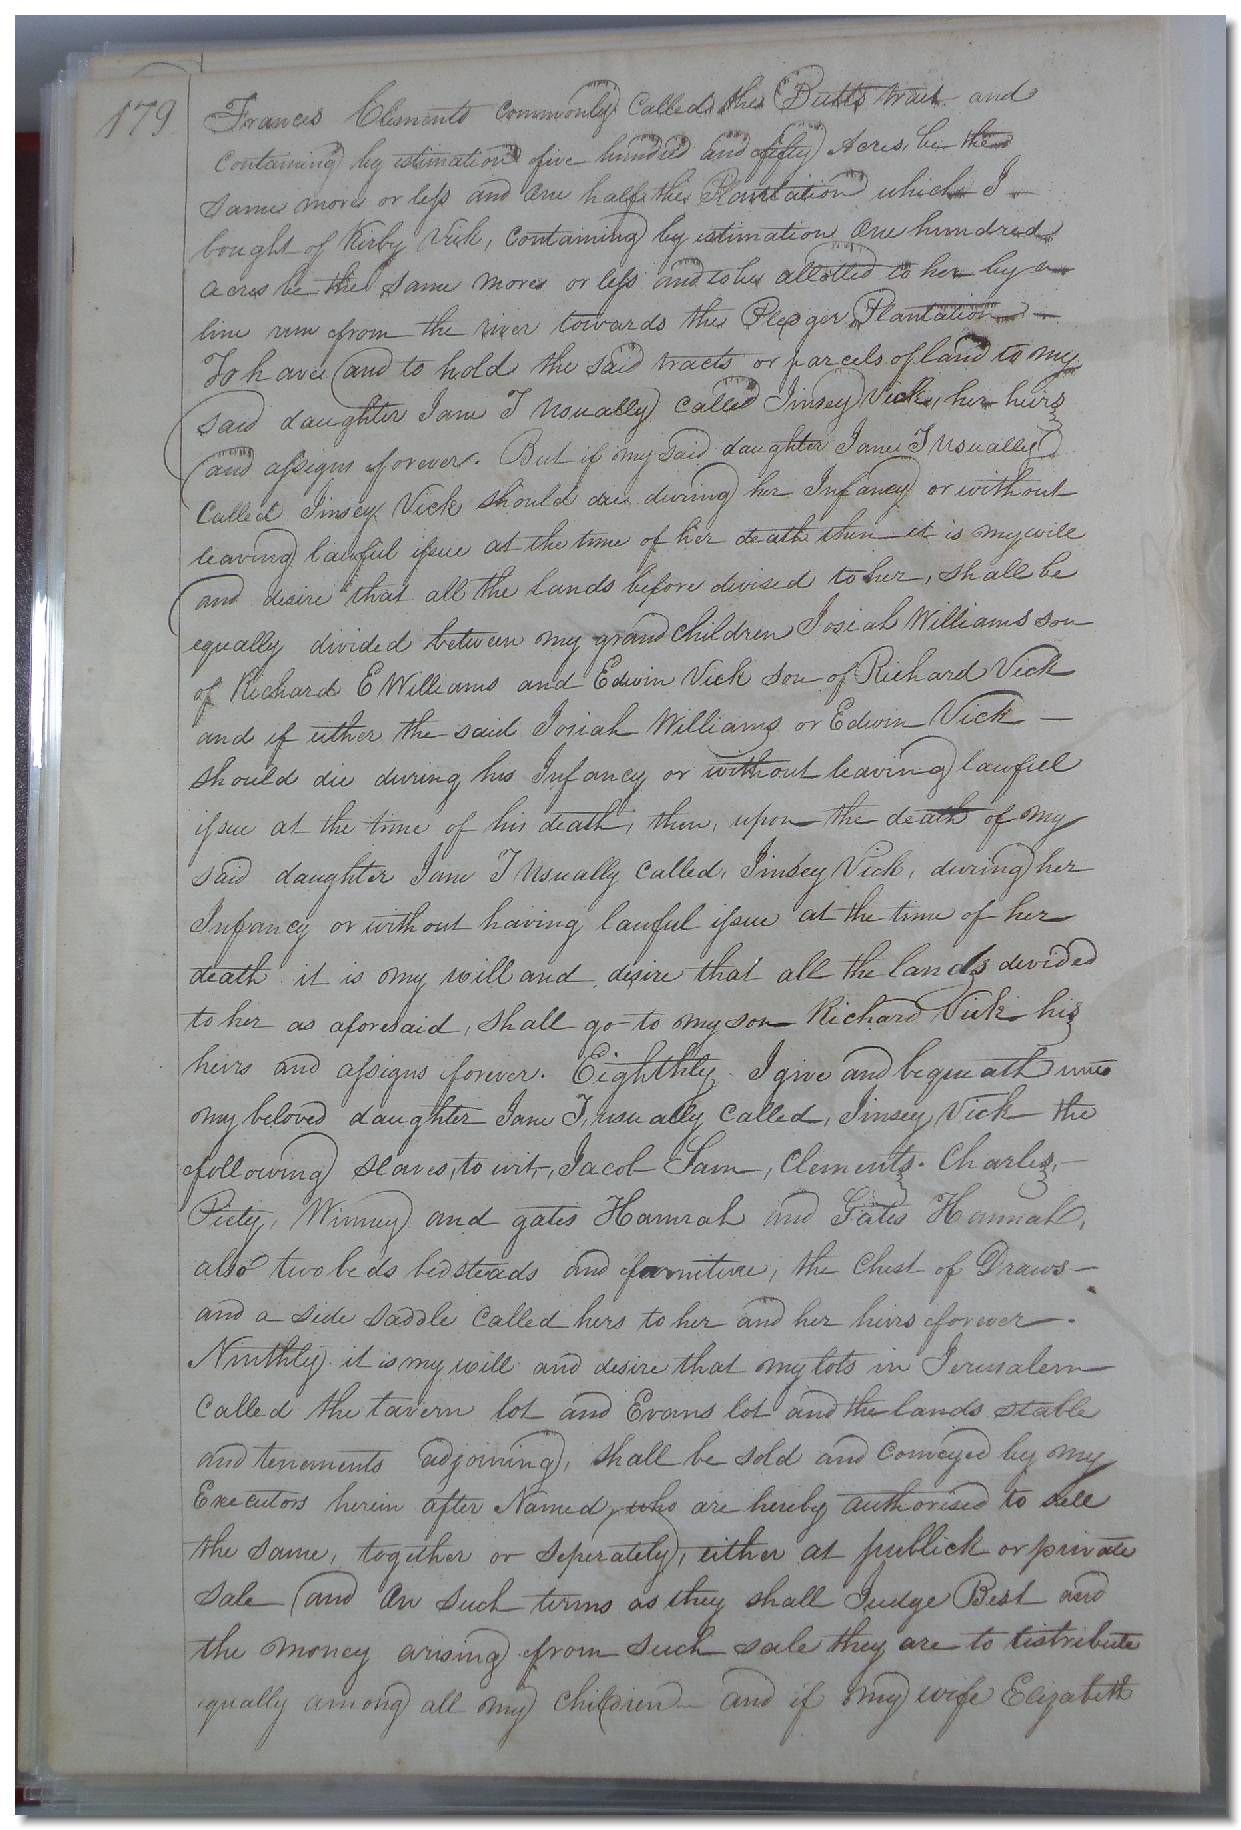 179
Francis Clements commonly called the Butts tract and
containing by estimation five hundred and fifty Acres be the
same more or less and one half the Plantation which I
bought of Kirby Vick, containing by estimation one hundred
acres be the same more or less and to be allotted to her by a
line run from the river towards the Pledger Plantation
To have and to hold the said tracts or parcels of land to my
said daughter Jane T usually called Jinsey Vick, her heirs
and assigns forever. But if my said daughter Jane T usually
called Jinsey Vick should die during her Infancy or without
leaving lawful issue at the time of her death then it is my will
and desire that all the lands before devised to her, shall be
equally divided between my grand children Josiah Williams son
of Richard E Williams and Edwin Vick son of Richard Vick
and if either the said Josiah Williams or Edwin Vick —
should die during his Infancy or without leaving lawful
issue at the time of his death, then, upon the death of my
said daughter Jane T usually called, Jinsey Vick, during her
Infancy or without having lawful issue at the time of her
death it is my will and desire that all the lands devided
to her as aforesaid, shall go to my son Richard Vick his
heirs and assigns forever. Eighthly I give and bequeath unto
my beloved daughter Jane T, usually called, Jinsey Vick the
following slaves, to wit, Jacob Sam, Clements. Charles, —
Piety, Winney and gates Hannah and Gates Hannah,
also two beds bedsteads and furniture, the Chest of Draws —
and a side saddle called hers to her and her heirs forever.
Ninthly it is my will and desire that my lots in Jerusalem
called the tavern lot and Evans lot and the lands stable
and tenements adjoining, shall be sold and conveyed by my
Executors herein after Named, who are hereby authorised to sell
the same, together or seperately, either at publick or private
sale and on such terms as they shall Judge Best and
the money arising from such sale they are to distribute
equally among all my children — and if my wife Elizabeth